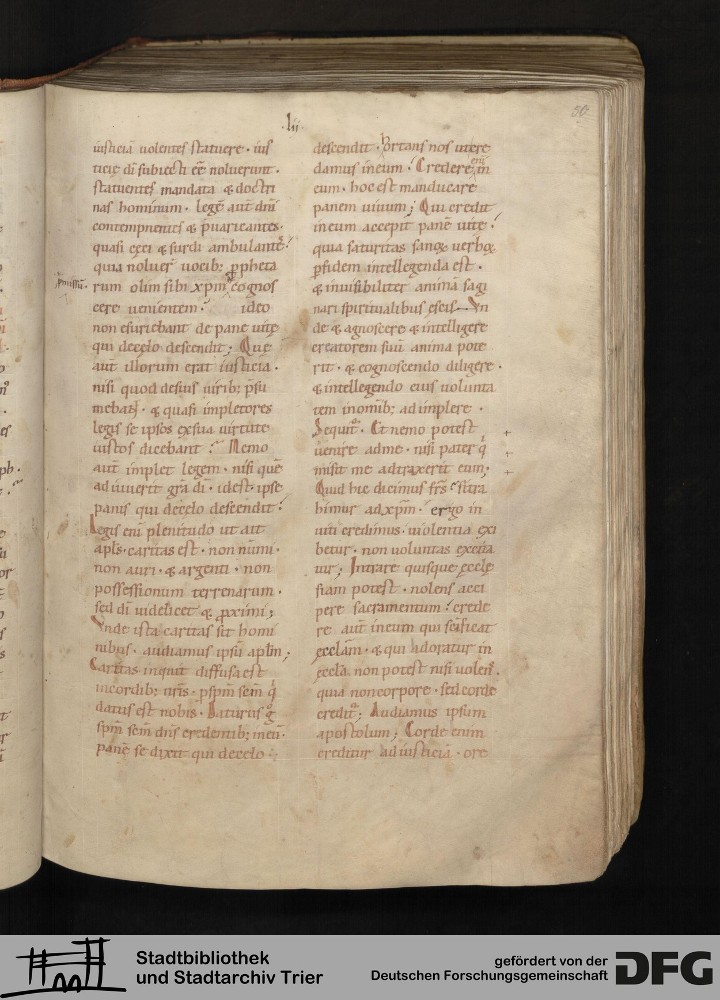 lij
50
iusticiā uolentes statuere · ius
ticię dī subiecti eē noluerunt ·
statuentes mandata & doctri
nas hominum · legē aut dnī
contempnentes & p̄uaricantes ·
quasi cęci & surdi ambulantes
quia noluer uocib; ꝓpheta
rum olim sibi xp̄m cognos
p̄missū
cere uenientem · ideo
non esuriebant de pane uite
qui decęlo descendit; Que
aūt illorum erat iusticia ·
nisi quod desuis uirib; p̄su
mebant · & quasi impletores
legis se ipsos exsua uirtute
iustos dicebant · Nemo
aūt implet legem · nisi quē
adiuuerit grā dī · idest ipse
panis qui decęlo descendit ·
Legis enī plenitudo ut ait
apls · caritas est · non nūmi ·
non auri · & argenti · non
possessionum terrenarum ·
sed dī uidelicet & ꝓximi;
Vnde ista caritas sit homi
nibus · audiamus ipsū aplm;
Caritas inquit diffusa est
incordib; nr̄is · p̄spm̄ scm̄ q̄
datus est nobis · Daturus g̊
spm̄ scm̄ dn̄s credentib; ineū ·
panē se dixit qui decęlo
descendit · hortans nos utcre
damus ineum · Credere enī in
eum · hoc est manducare
panem uiuum; Qui credit
ineum accepit panē uite ·
quia saturitas sanctę uerbo
ꝑfidem intellegenda est ·
& inuisibiliter animā sagi
nari spiritualibus escis · Vn
de & agnoscere & intelligere
creatorem suū anima pote
rit · & cognoscendo diligere ·
& intellegendo eius uolunta
tem inomib; adimplere ·
Sequit᷑ · Et nemo potest
uenire adme · nisi pater q̄
misit me adtraxerit eum;
Quid hic dicimus frs̄ · si tra
himur adxp̄m · ergo in
uiti credimus · uiolentia exi
betur · non uoluntas excita
tur; Intrare quisque ęccle
siam potest · nolens acci
pere sacramentum · crede
re aūt ineum qui sc̄ificat
ęcclam · & qui adoratur in
ęccla · non potest nisi uolens ·
quia noncorpore · sedcorde
credit᷑; Audiamus ipsum
apostolum; Corde enim
creditur adiusticiā · ore
Stadtbibliothek
und Stadtarchiv Trier
gefördert von der
Deutschen Forschungsgemeinschaft
DFG